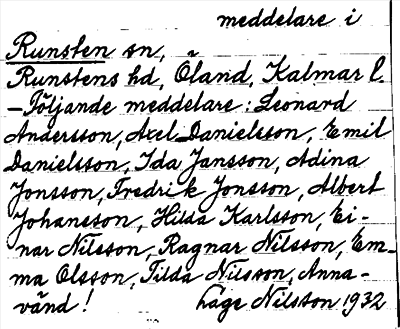 meddelare i
Runsten sn,
Runstens hd, Öland, Kalmar l.
- Följande meddelare: Leonard
Andersson, Axel Danielsson, Emil
Danielsson, Ida Jansson, Adina
Jonsson, Fredrik Jonsson, Albert
Johansson, Hilda Karlsson, Ei-
nar Nilsson, Ragnar Nilsson, Em-
ma Olsson, Tilda Nilsson, Anna -
vänd! Lage Nilsson 1932